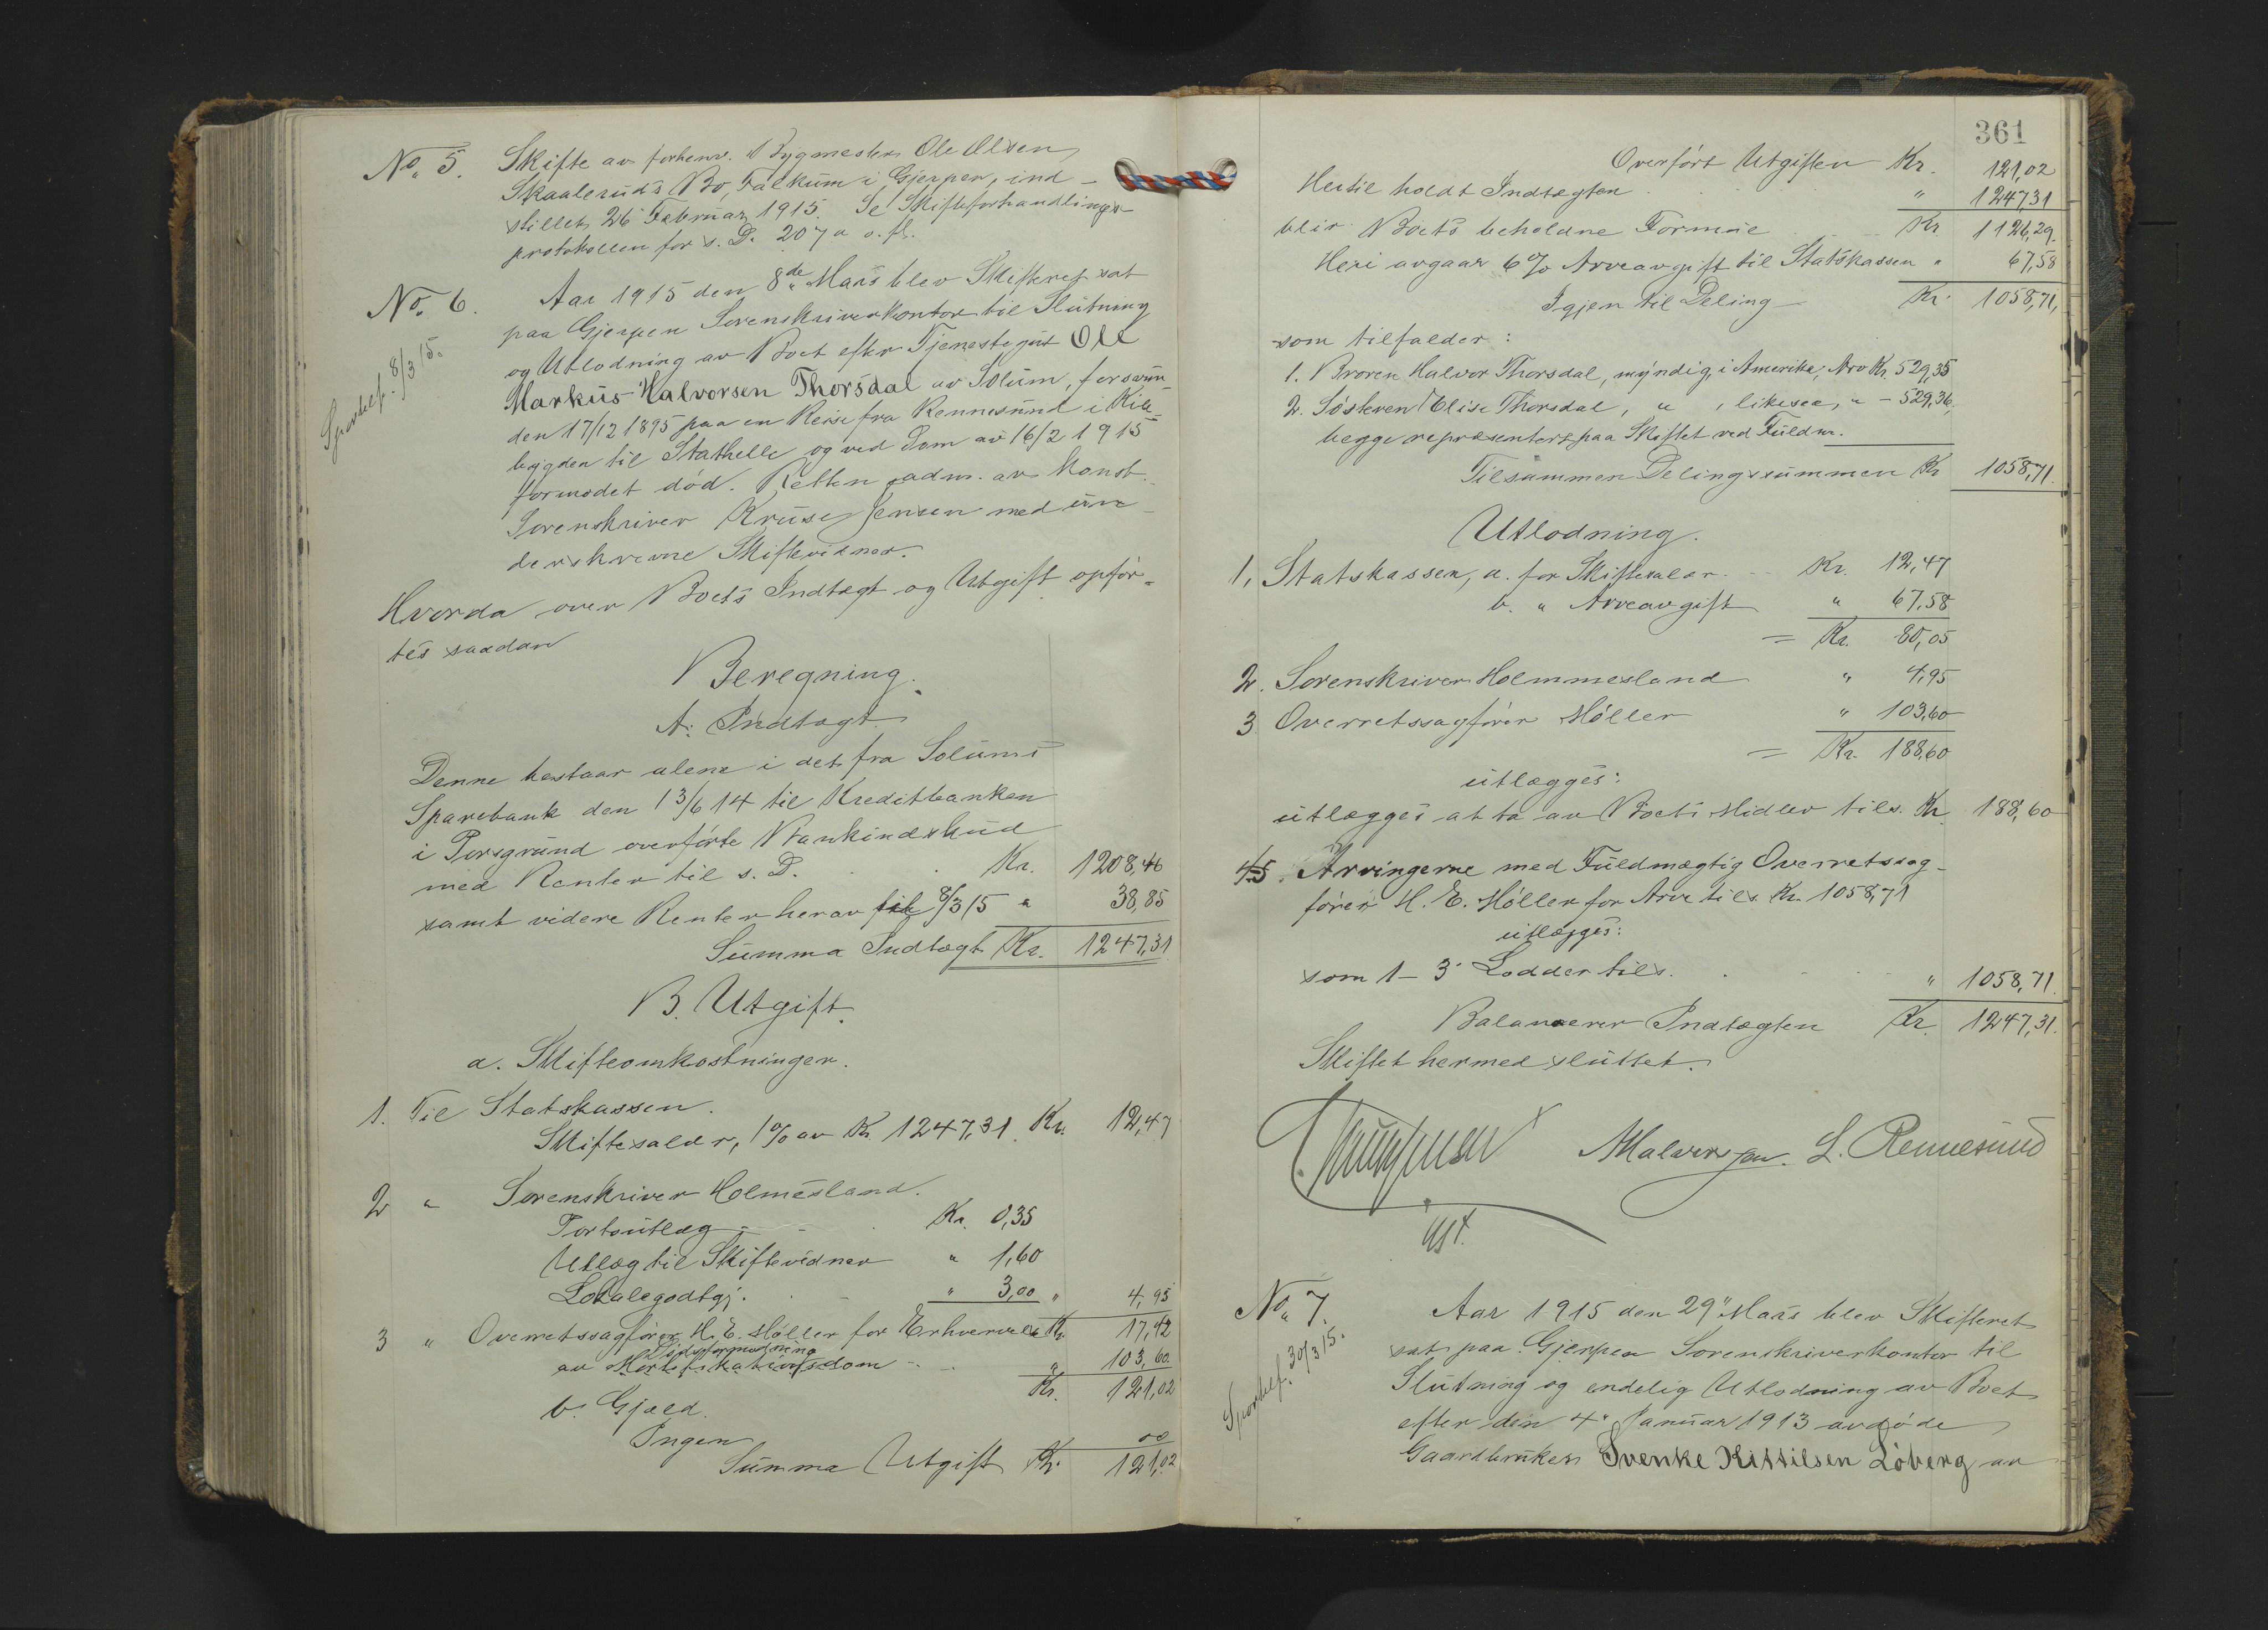 No. 5. Skifte av forhenv. Bygmester Ole Olsen
Skaalerud's Bo, Falkum i Gjerpen, ind-
stillet 26 Februar 1915. Se Skifteforhandlings-
protokollen for s. D. 207 a o. fl.
No. 6. Aar 1915 den 8de Mars blev Skifteret sat
paa Gjerpen Sorenskriverkontor til Slutning
og Utlodning av Boet efter Tjenestegut Ole
Markus Halvorsen Thorsdal av Solum, forsvun-
den 17/12 1895 paa en Reise fra Rennesund i Kile-
bygden til Stathelle og ved Dom av 16/2 1915
formodet död. Retten adm. av Konst.
Sorenskriver Kruse Jensen med un-
derskrevne Skiftevidner.
8/3 15.
Hvorda over Boets Indtægt og Utgift opför-
tes saadan
Beregning.
A. Indtægt
Denne bestaar alene i det fra Solums
Sparebank den 13/6 14 til Kreditbanken
i Porsgrund overförte Bankindskud
med Renter til s. D. Kr. 1208,46
samt videre Renter herav til 8/3 15 " 38,85
Summa Indtægt Kr. 1247,31
B. Utgift.
a. Skifteomkostninger.
1. Til Statskassen.
Skiftesalær, 1% av Kr. 1247,31. Kr. 12,47
2 " Sorenskriver Holmesland.
Portoutlæg Kr. 0,35
Utlæg til Skiftevidner " 1,60
Lokalegodtgj. " 3,00 " 4,95
Kr. 17,42
3 " Overretssagförer H. E. Möller for Erhvervelse
Dödsformodning
av Mortifikationsdom " 103,60
Kr. 121,02
b. Gjæld.
Ingen 00
Summa Utgift Kr. 121,02
361
Overfört Utgiften Kr. 121,02
Hertil holdt Indtægten " 1247,31
blir Boets beholdne Formue Kr. 1126,29.
Heri avgaar 6% Arveavgift til Statskassen " 67,58
Igjen til Deling Kr. 1058,71,
som tilfalder:
1. Broren Halvor Thorsdal, myndig, i Amerika, Arv Kr. 529,35
2. Sösteren Elise Thorsdal, " , likesaa, " - 529,36,
begge repræsentert paa Skiftet ved Fuldm.
Tilsammen Delingssummen Kr. 1058,71.
Utlodning.
1, Statskassen, a. for Skiftesalær Kr. 12,47
b. " Arveavgift " 67,58
= Kr. 80,05
2. Sorenskriver Holmmesland " 4,95
3 Overretssagförer Möller " 103,60
= Kr. 188,60
utlægges:
utlægges at ta av Boets Midler tils. Kr. 188,60
4-5. Arvingerne med Fuldmægtig Overretssag-
förer H. E. Möller for Arv tils. Kr. 1058,71
utlægges:
som 1-3 Lodder tils. " 1058,71.
Balanserer Indtægten Kr. 1247,31.
Skiftet hermed sluttet.
L. Rennesund
kst.
No. 7. Aar 1915 den 29" Mars blev Skifteret
sat paa Gjerpen Sorenskriverkontor til
Slutning og endelig Utlodning av Boet
efter den 4. Januar 1913 avdöde
Gaardbruker Svenke Kittilsen Löberg av
30/3 15.